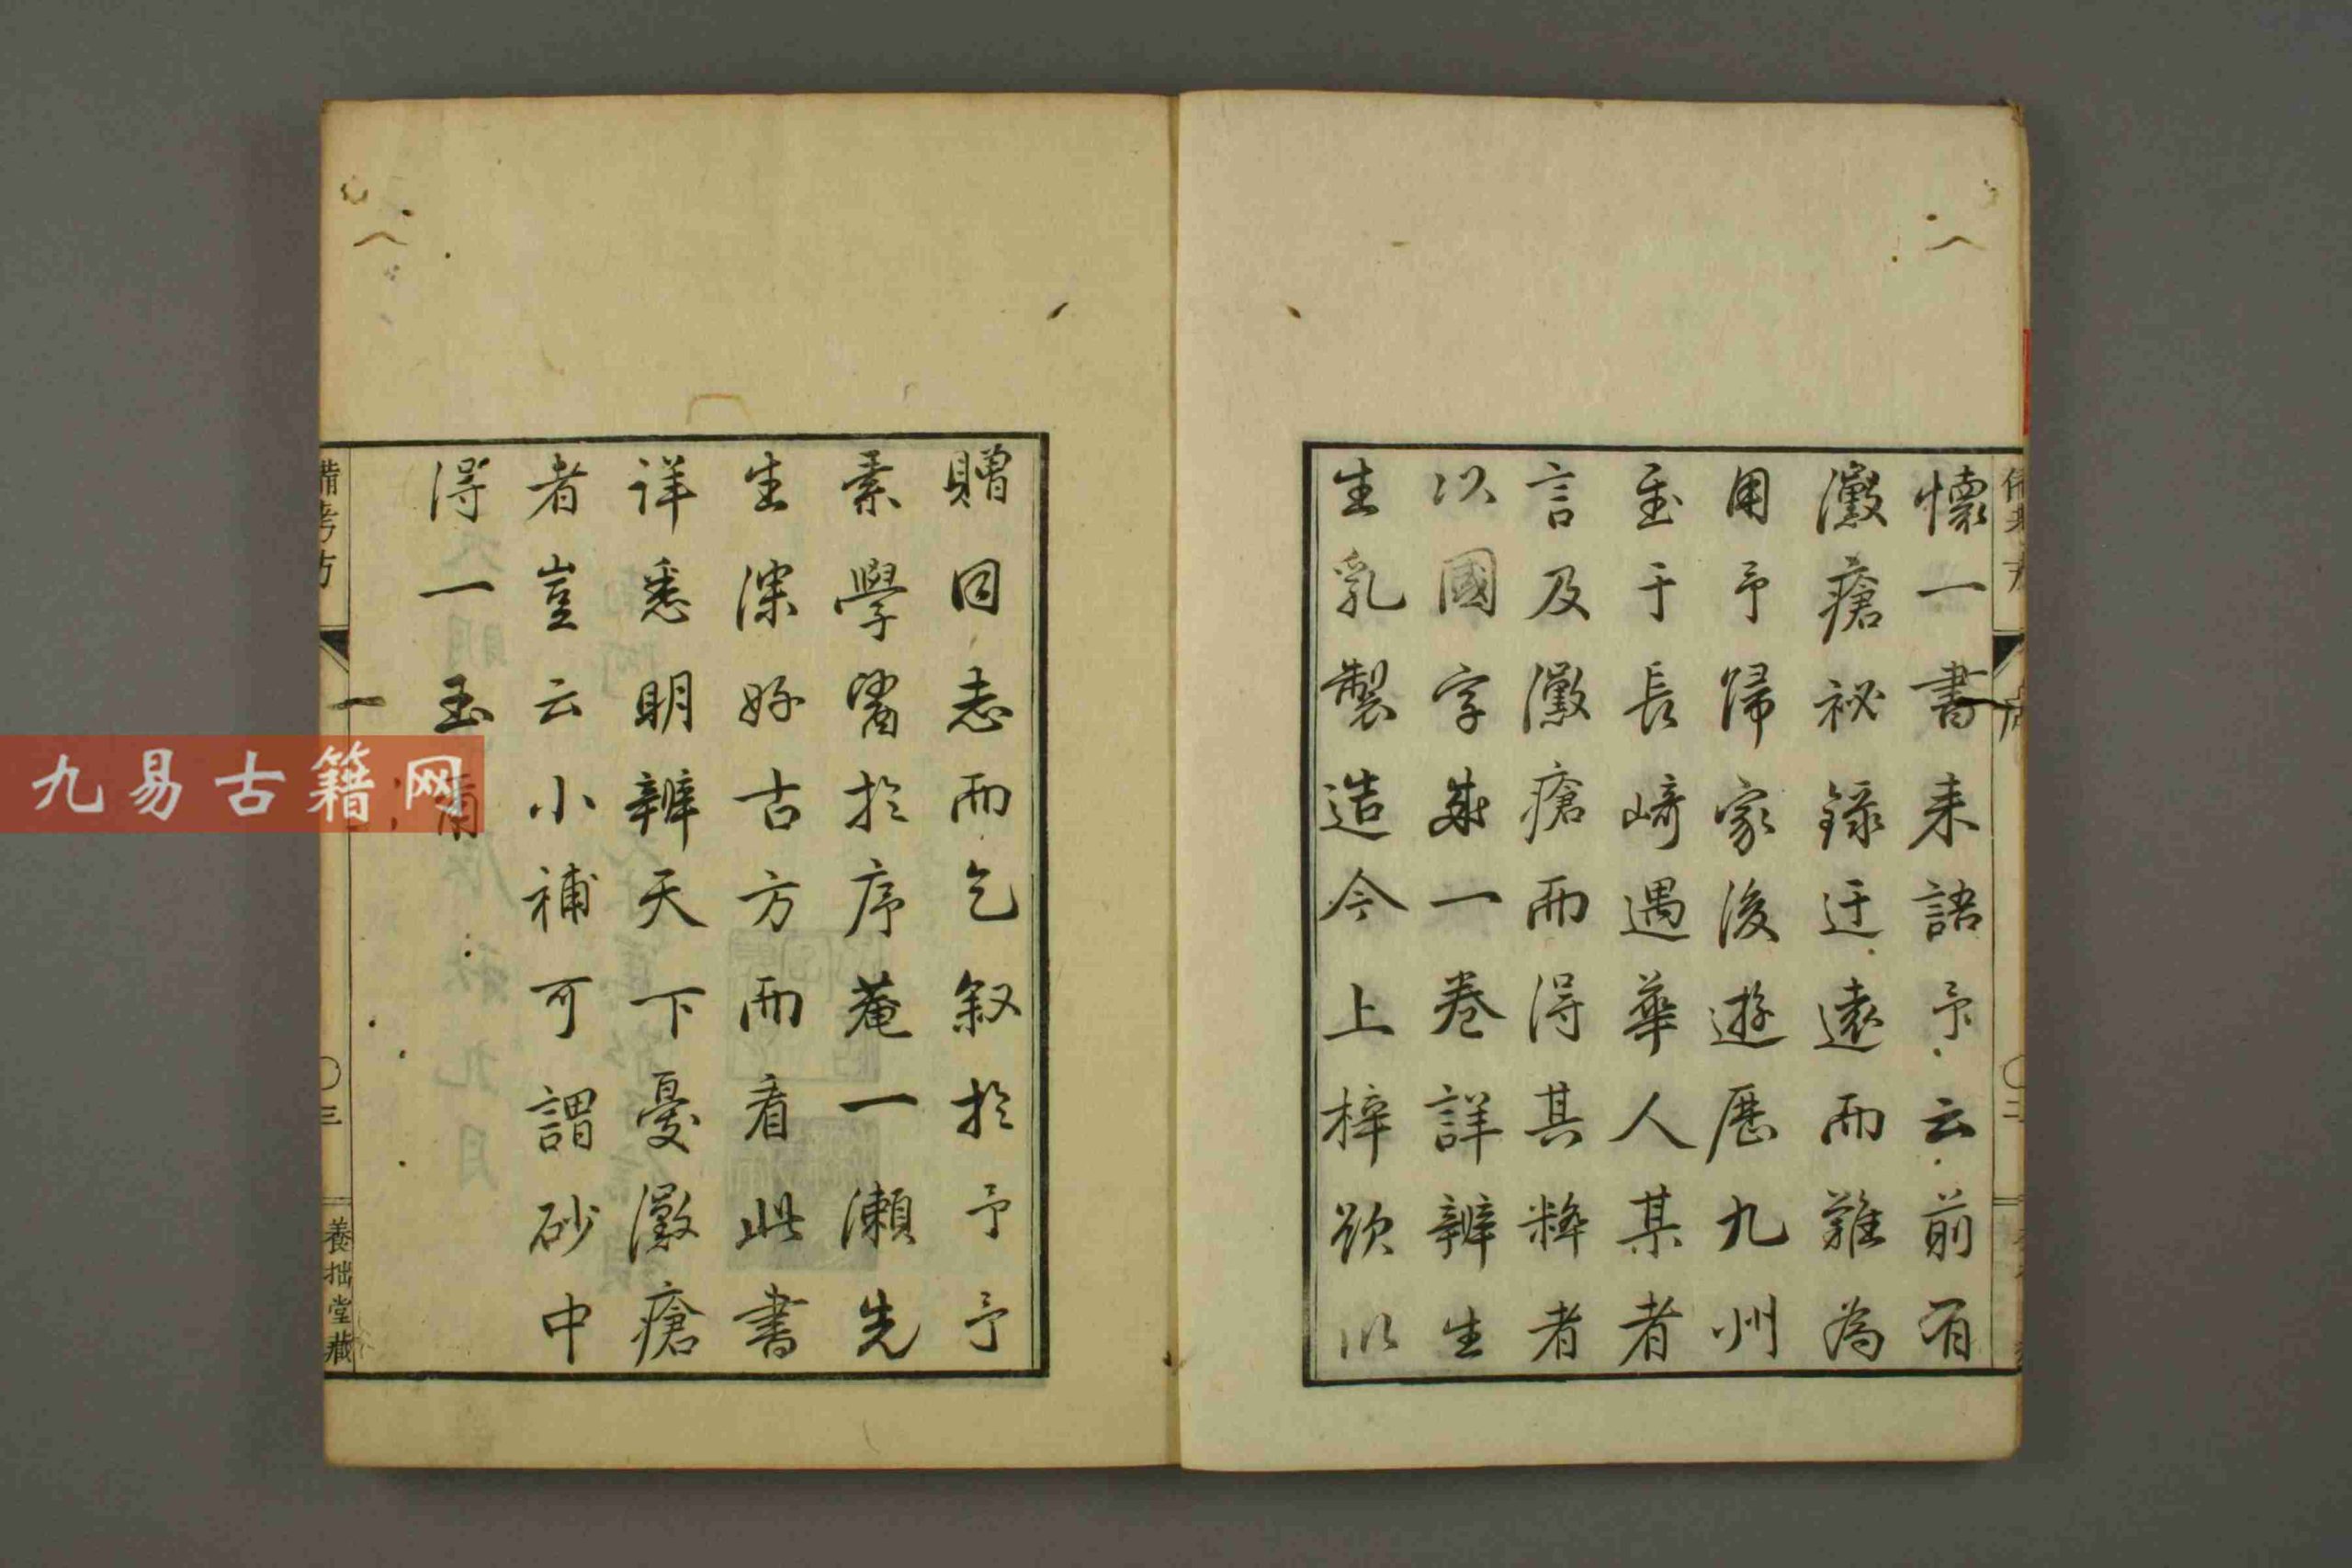 懷一書来語予云前有
黴瘡祕録迂遠而難為
用予歸家後遊歴九州
至于長崎遇華人某者
言及黴瘡而得其粹者
以國字為一卷詳辨生
生乳製造今上梓欲以
贈同志而乞叙於予予
素學醫於序菴一瀬先
生深好古方而看此書
詳悉明辨天下憂黴瘡
者豈云小補可謂砂中
得一玉
備考方
三
養拙堂藏
九易古籍网